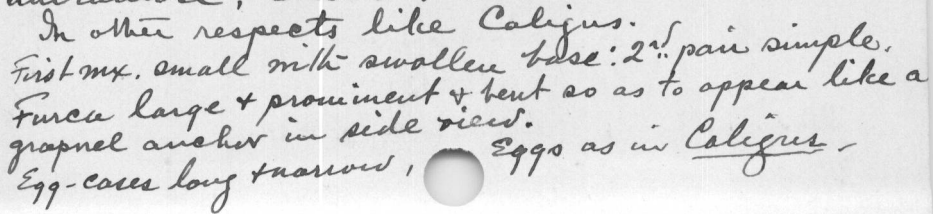 In other respects like Caligus.
First mx. small with swollen base: 2nd pair simple.
Furca large + prominent + bent so as to appear like a
grapnel anchor in side view.
Egg-cases long + narrow, Eggs as in Caligus -